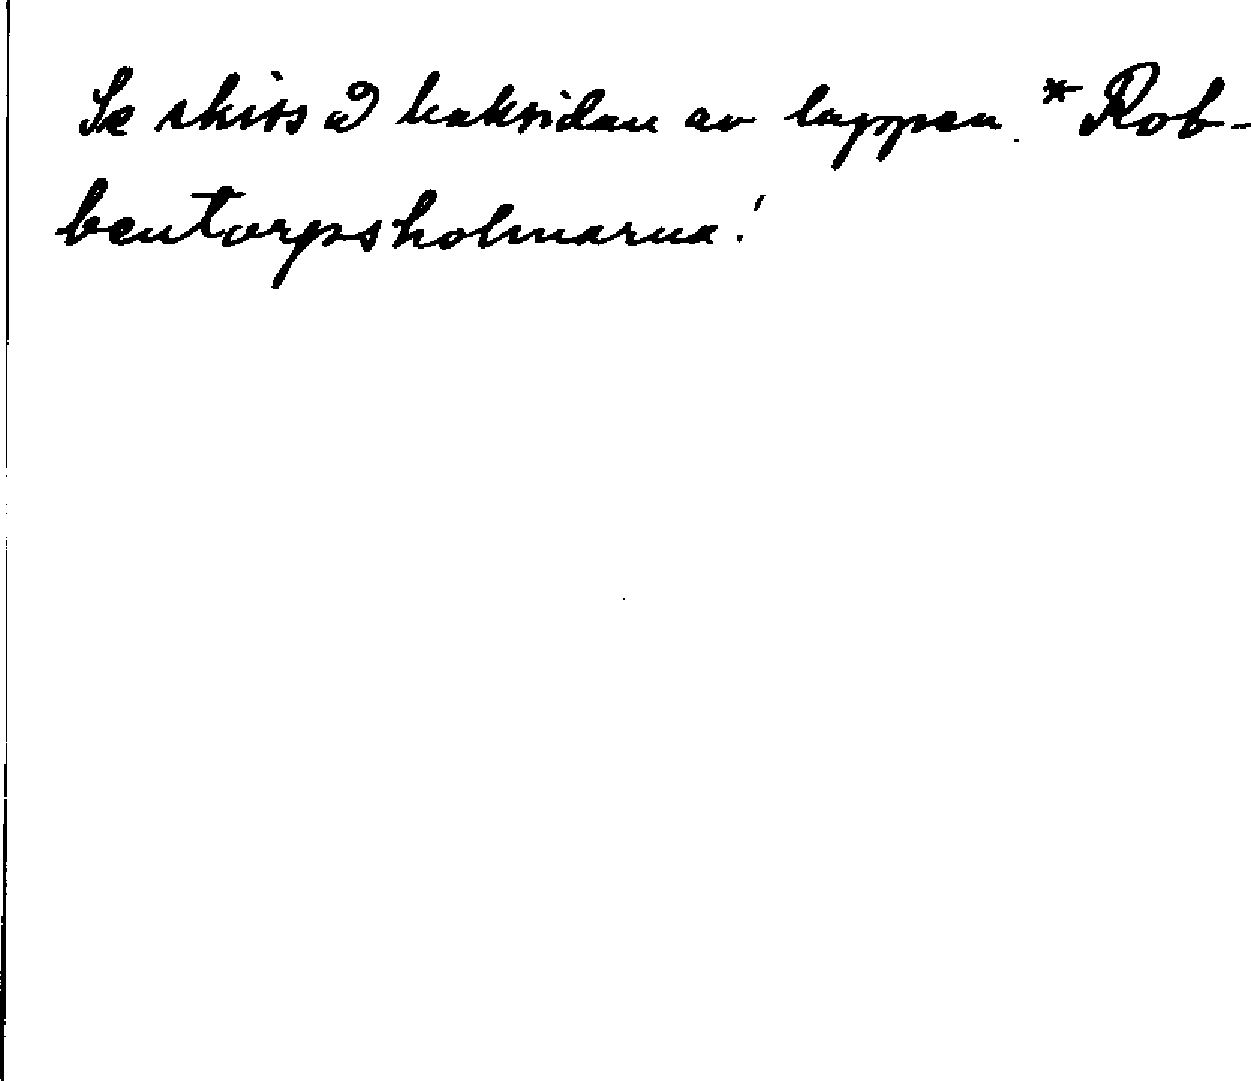 Se skiss å baksidan av lappen. * Rob-
bentorpsholmarna!